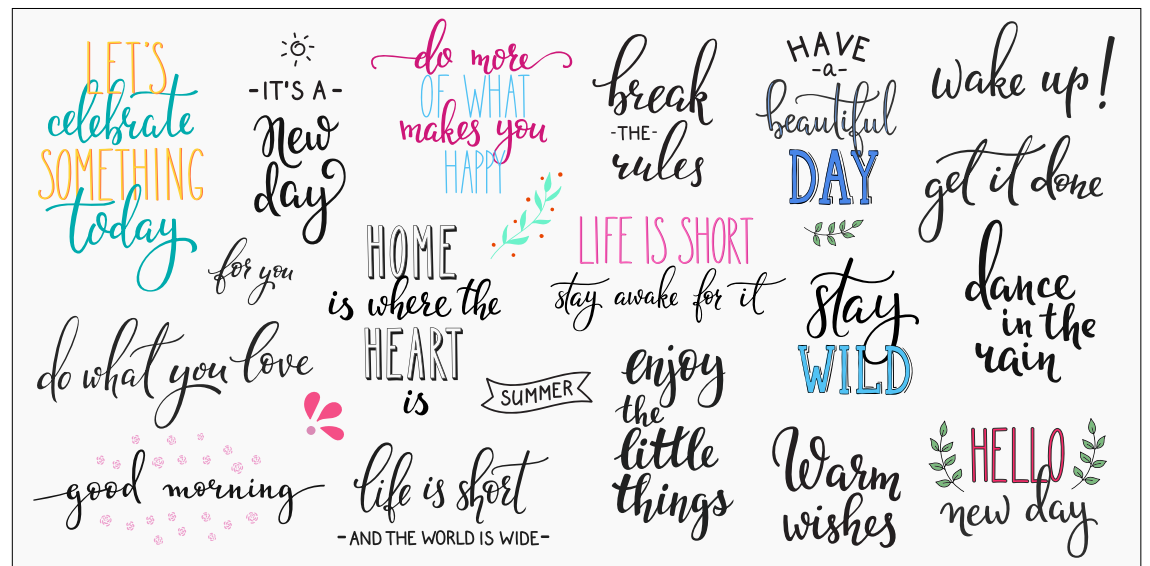 LET'S
celebrate
SOMETHING
today
IT'S A
New
day
do more
OF WHAT
makes you
HAPPY
break
-THE-
rules
HAVE
-a-
beautiful
DAY
wake up!
get it done
for you
HOME
is where the
HEART
is
LIFE IS SHORT
stay awake for it
stay
WILD
dance
in the
rain
do what you love
SUMMER
enjoy
the
little
things
good morning
life is short
-AND THE WORLD IS WIDE-
Warm
wishes
HELLO
new day